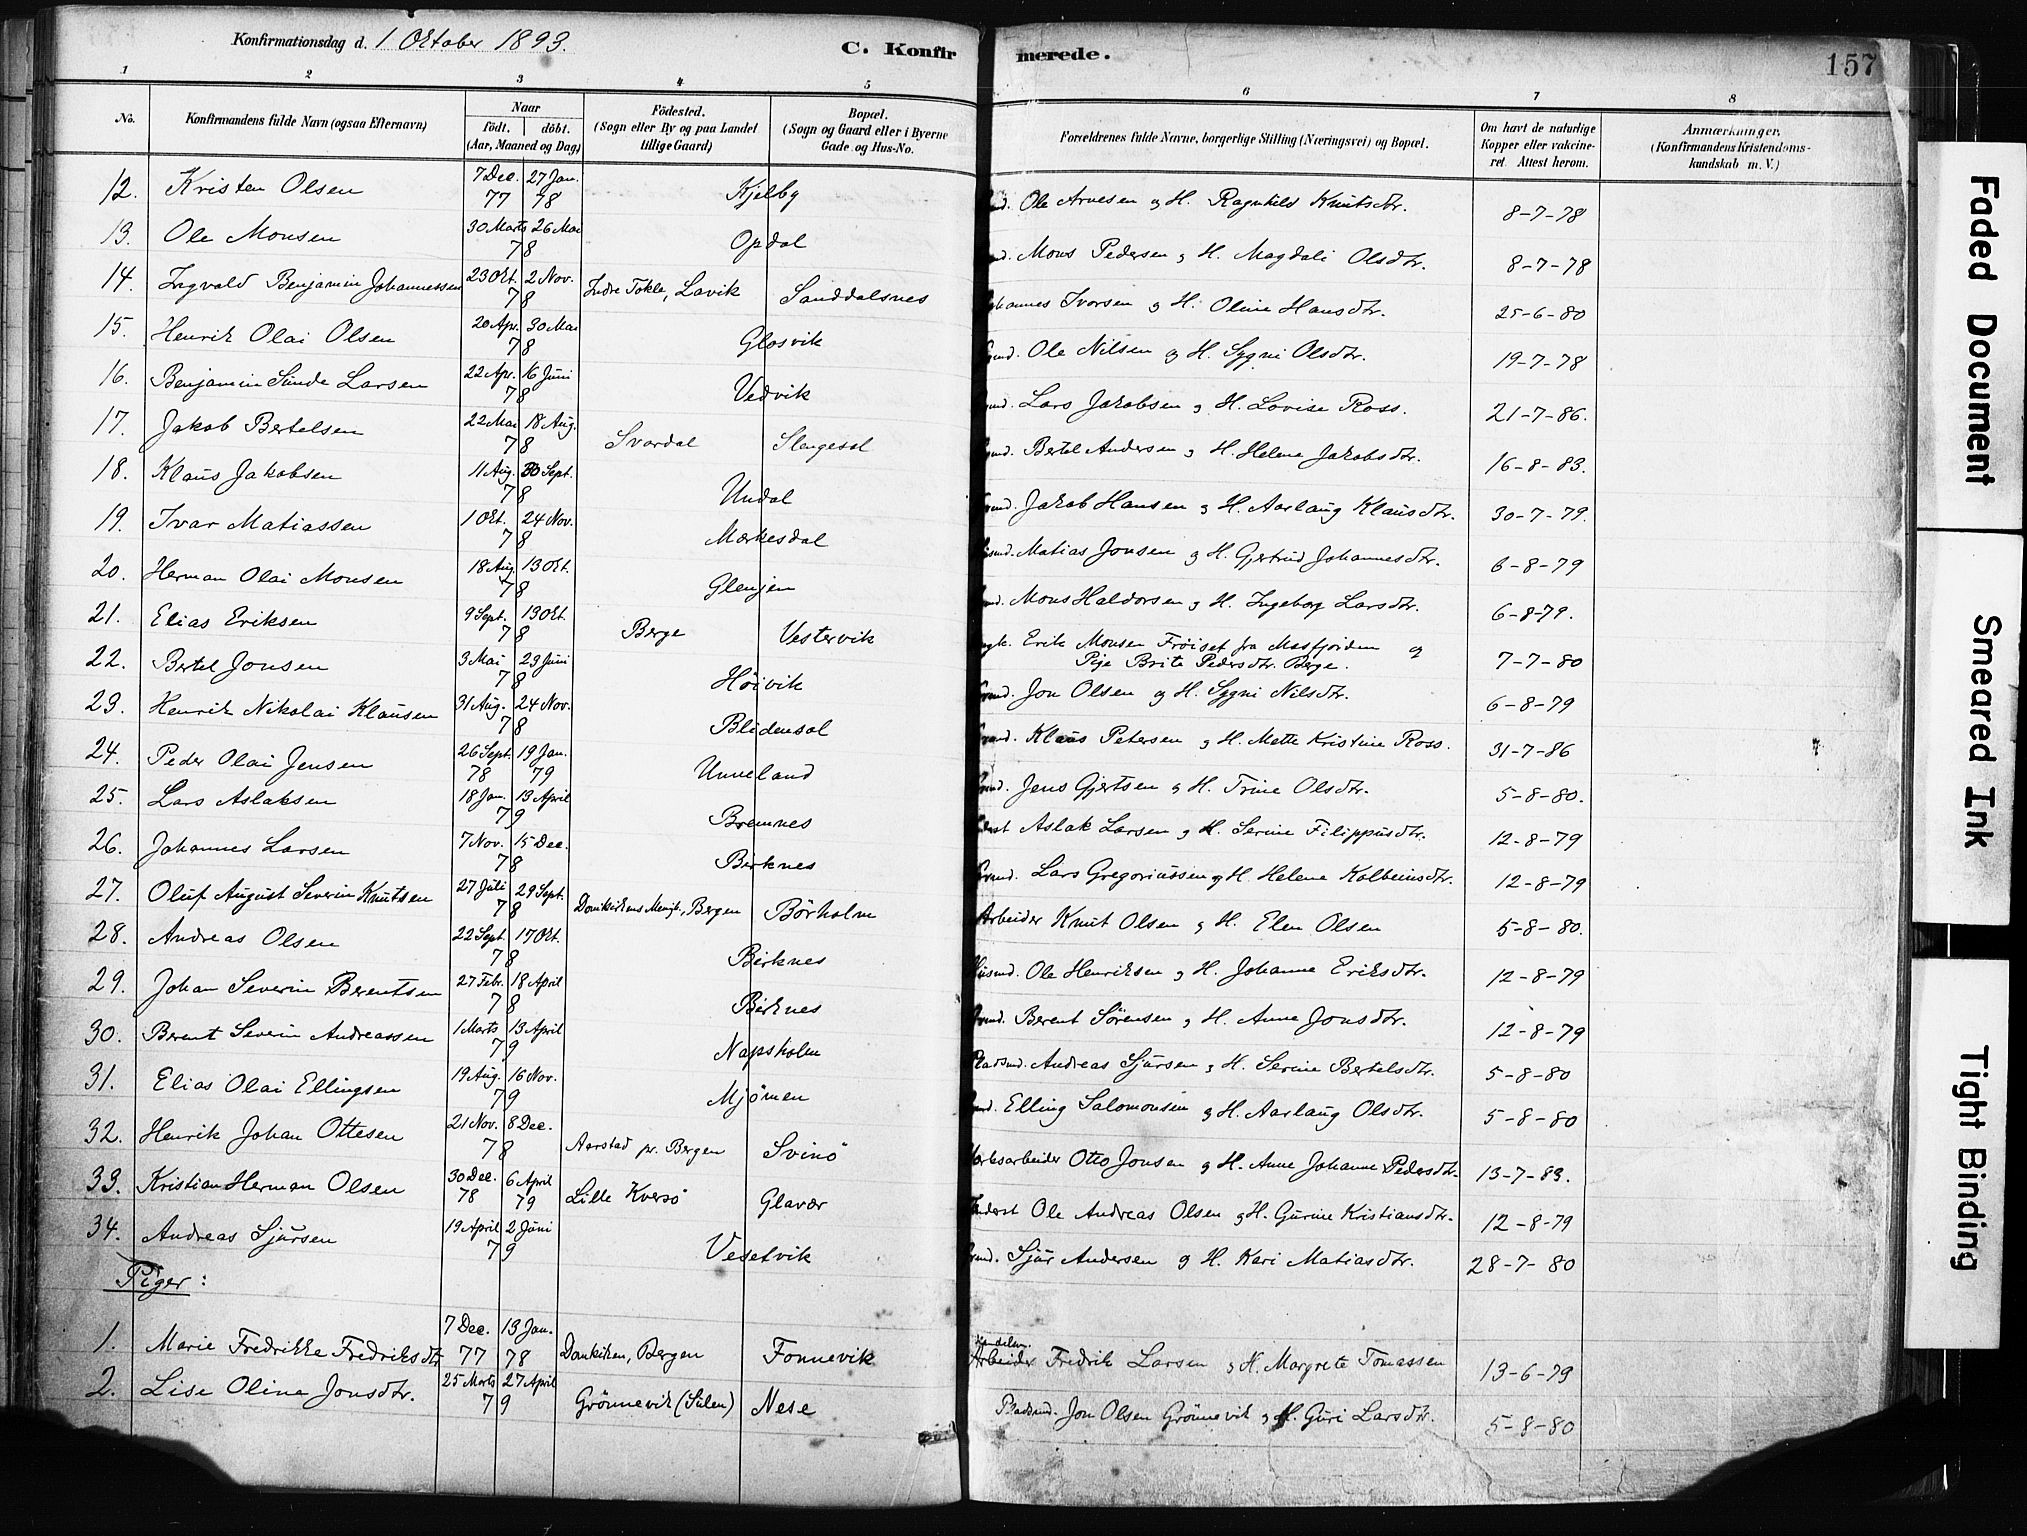 Konfirmationsdag d. 1 Oktober 1893.
C. Konfirmerede.
157
1 2 3 4 5 6 7 8
No.
Konfirmandens fulde Navn (ogsaa Efternavn)
Naar
födt. döbt.
(Aar, Maaned og Dag)
Födested.
(Sogn eller By og paa Landet
tillige Gaard)
Bopæl.
(Sogn og Gaard eller i Byerne
Gade og Hus-No.
Forældrenes fulde Navne, borgerlige Stilling (Næringsvei) og Bopæl.
Om havt de naturlige
Kopper eller vakcine-
ret. Attest herom.
Anmærkninger.
(Konfirmandens Kristendoms-
kundskab m. V.)
12. Kristen Olsen 7 Dec. 77 27 Jan. 78 Kjelby Ole Arnesen og H. Ragnhild Knutsdtr. 8-7-78
13. Ole Monsen 30 Marts 26 Mai 78 Opdal Mons Pedersen og H. Magdali Olsdtr. 8-7-78
14. Ingvald Benjamin Johannessen 23 Okt. 2 Nov. 78 Indre Takle, Lavik Sanddalsnes Johannes Ivorsen og H. Oline Hansdtr. 25-6-80
15. Henrik Olai Olsen 20 Apr. 30 Mai 78 Glosvik Ole Nilsen og H. Sygni Olsdtr. 19-7-78
16. Benjamin Sunde Larsen 22 Apr. 16 Juni 78 Vedvik Lars Jakobsen og H. Lovise Ross. 21-7-86.
17. Jakob Bertelsen 22 Mai 18 Aug. 78 Svardal Slengesol Bertel Andersen og H. Helene Jakobsdtr. 16-8-83.
18. Klaus Jakobsen 11 Aug. 30 Sept. 78 Undal Jakob Hansen og H. Aarlaug Klausdtr. 30-7-79.
19. Ivar Matiassen 1 Okt. 24 Nov. 78 Mærkesdal Matias Jonsen og H. Gjertrud Johannesdtr. 6-8-79
20. Herman Olai Monsen 18 Aug. 13 Okt. 78 Glenjen Mons Haldorsen og H. Ingeborg Larsdtr. 6-8-79.
21. Elias Eriksen 9 Sept. 13 Okt. 78 Berge Vestervik Ungk. Erik Monsen Fröiset fra Masfjorden og
Pige Brite Pedersdtr. Berge. 7-7-80
22. Bertel Jonsen 3 Mai 23 Juni 78 Höivik Jon Olsen og H. Sygni Nilsdtr. 6-8-79
23. Henrik Nikolai Klausen 31 Aug. 24 Nov. 78 Blidensol Klaus Petersen og H. Mette Kristine Ross. 31-7-86
24. Peder Olai Jensen 26 Sept. 78 19 Jan. 79 Unneland Jens Gjertsen og H. Trine Olsdtr. 5-8-80.
25. Lars Aslaksen 18 Jan. 13 April 79 Bremnes Aslak Larsen og H. Serine Filippusdtr. 12-8-79
26. Johannes Larsen 7 Nov. 15 Dec. 78 Birknes Lars Gregoriussen og H. Helene Kolbeinsdtr. 12-8-79
27. Oluf August Severin Knutsen 27 Juli 29 Sept. 78 Domkirkens Menigh., Bergen Börholm Arbeider Knut Olsen og H. Elen Olsen 5-8-80.
28. Andreas Olsen 22 Sept. 17 Okt. 78 Birknes Husmd. Ole Henriksen og H. Johanne Eriksdtr. 12-8-79
29. Johan Severin Berentsen 27 Febr. 18 April 78 Birknes Berent Sörensen og H. Anne Jonsdtr. 12-8-79
30. Berent Severin Andreassen 1 Marts 13 April 79 Napsholm Pladsmd. Andreas Sjursen og H. Serine Bertelsdtr. 5-8-80
31. Elias Olai Ellingsen 19 Aug. 16 Nov. 79 Mjömen Elling Salomonsen og H. Aarlaug Olsdtr. 5-8-80
32. Henrik Johan Ottesen 21 Nov. 8 Dec. 78 Aarstad pr. Bergen Svinö Otto Jonsen og H. Anne Johanne Pedersdtr. 13-7-83.
33. Kristian Herman Olsen 30 Dec. 78 6 April 79 Lille Kversö Glavær Inderst Ole Andreas Olsen og H. Gurine Kristiansdtr. 12-8-79
34. Andreas Sjursen 19 April 2 Juni 79 Vesetvik Sjur Andersen og H. Kari Matiasdtr. 28-7-80
Piger:
1. Marie Fredrikke Fredriksdtr 7 Dec. 77 13 Jan. 78 Domkirken, Bergen Fonnevik Arbeider Fredrik Larsen og H. Margrete Tomassen 13-6-79
2. Lise Oline Jonsdtr. 25 Marts 27 April 79 Grönnevik (Sulen) Nese Pladsmd. Jon Olsen Grönnevik og H. Guri Larsdtr. 5-8-80
Faded Document
Smeared Ink
Tight Binding